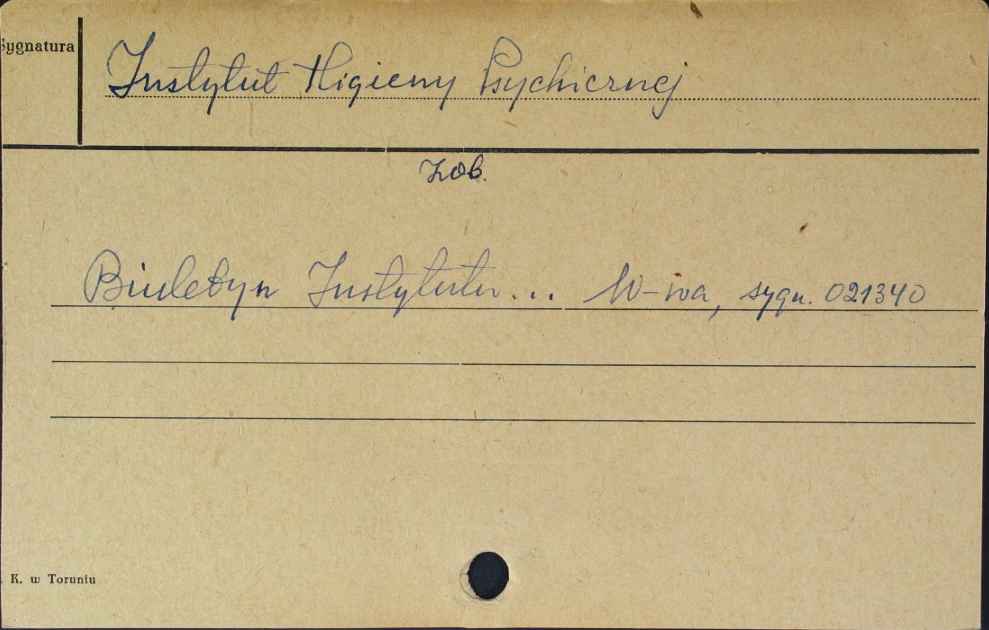 Sygnatura
Instytut Higieny Psychicznej
zob.
Biuletyn Instytutu... W-wa, sygn. 021340
K. w Toruniu